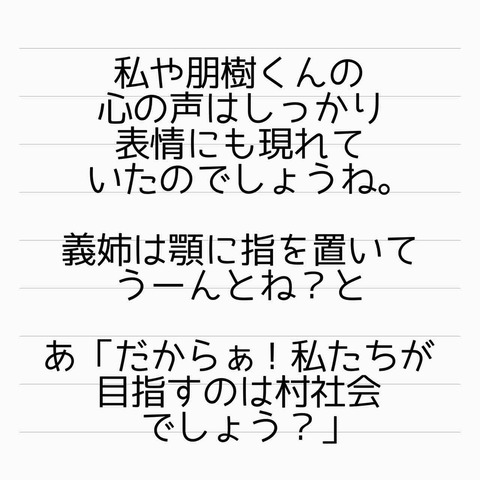 私や朋樹くんの
心の声はしっかり
表情にも現れて
いたのでしょうね。
義姉は顎に指を置いて
うーんとね？と
あ「だからぁ！私たちが
目指すのは村社会
でしょう？」